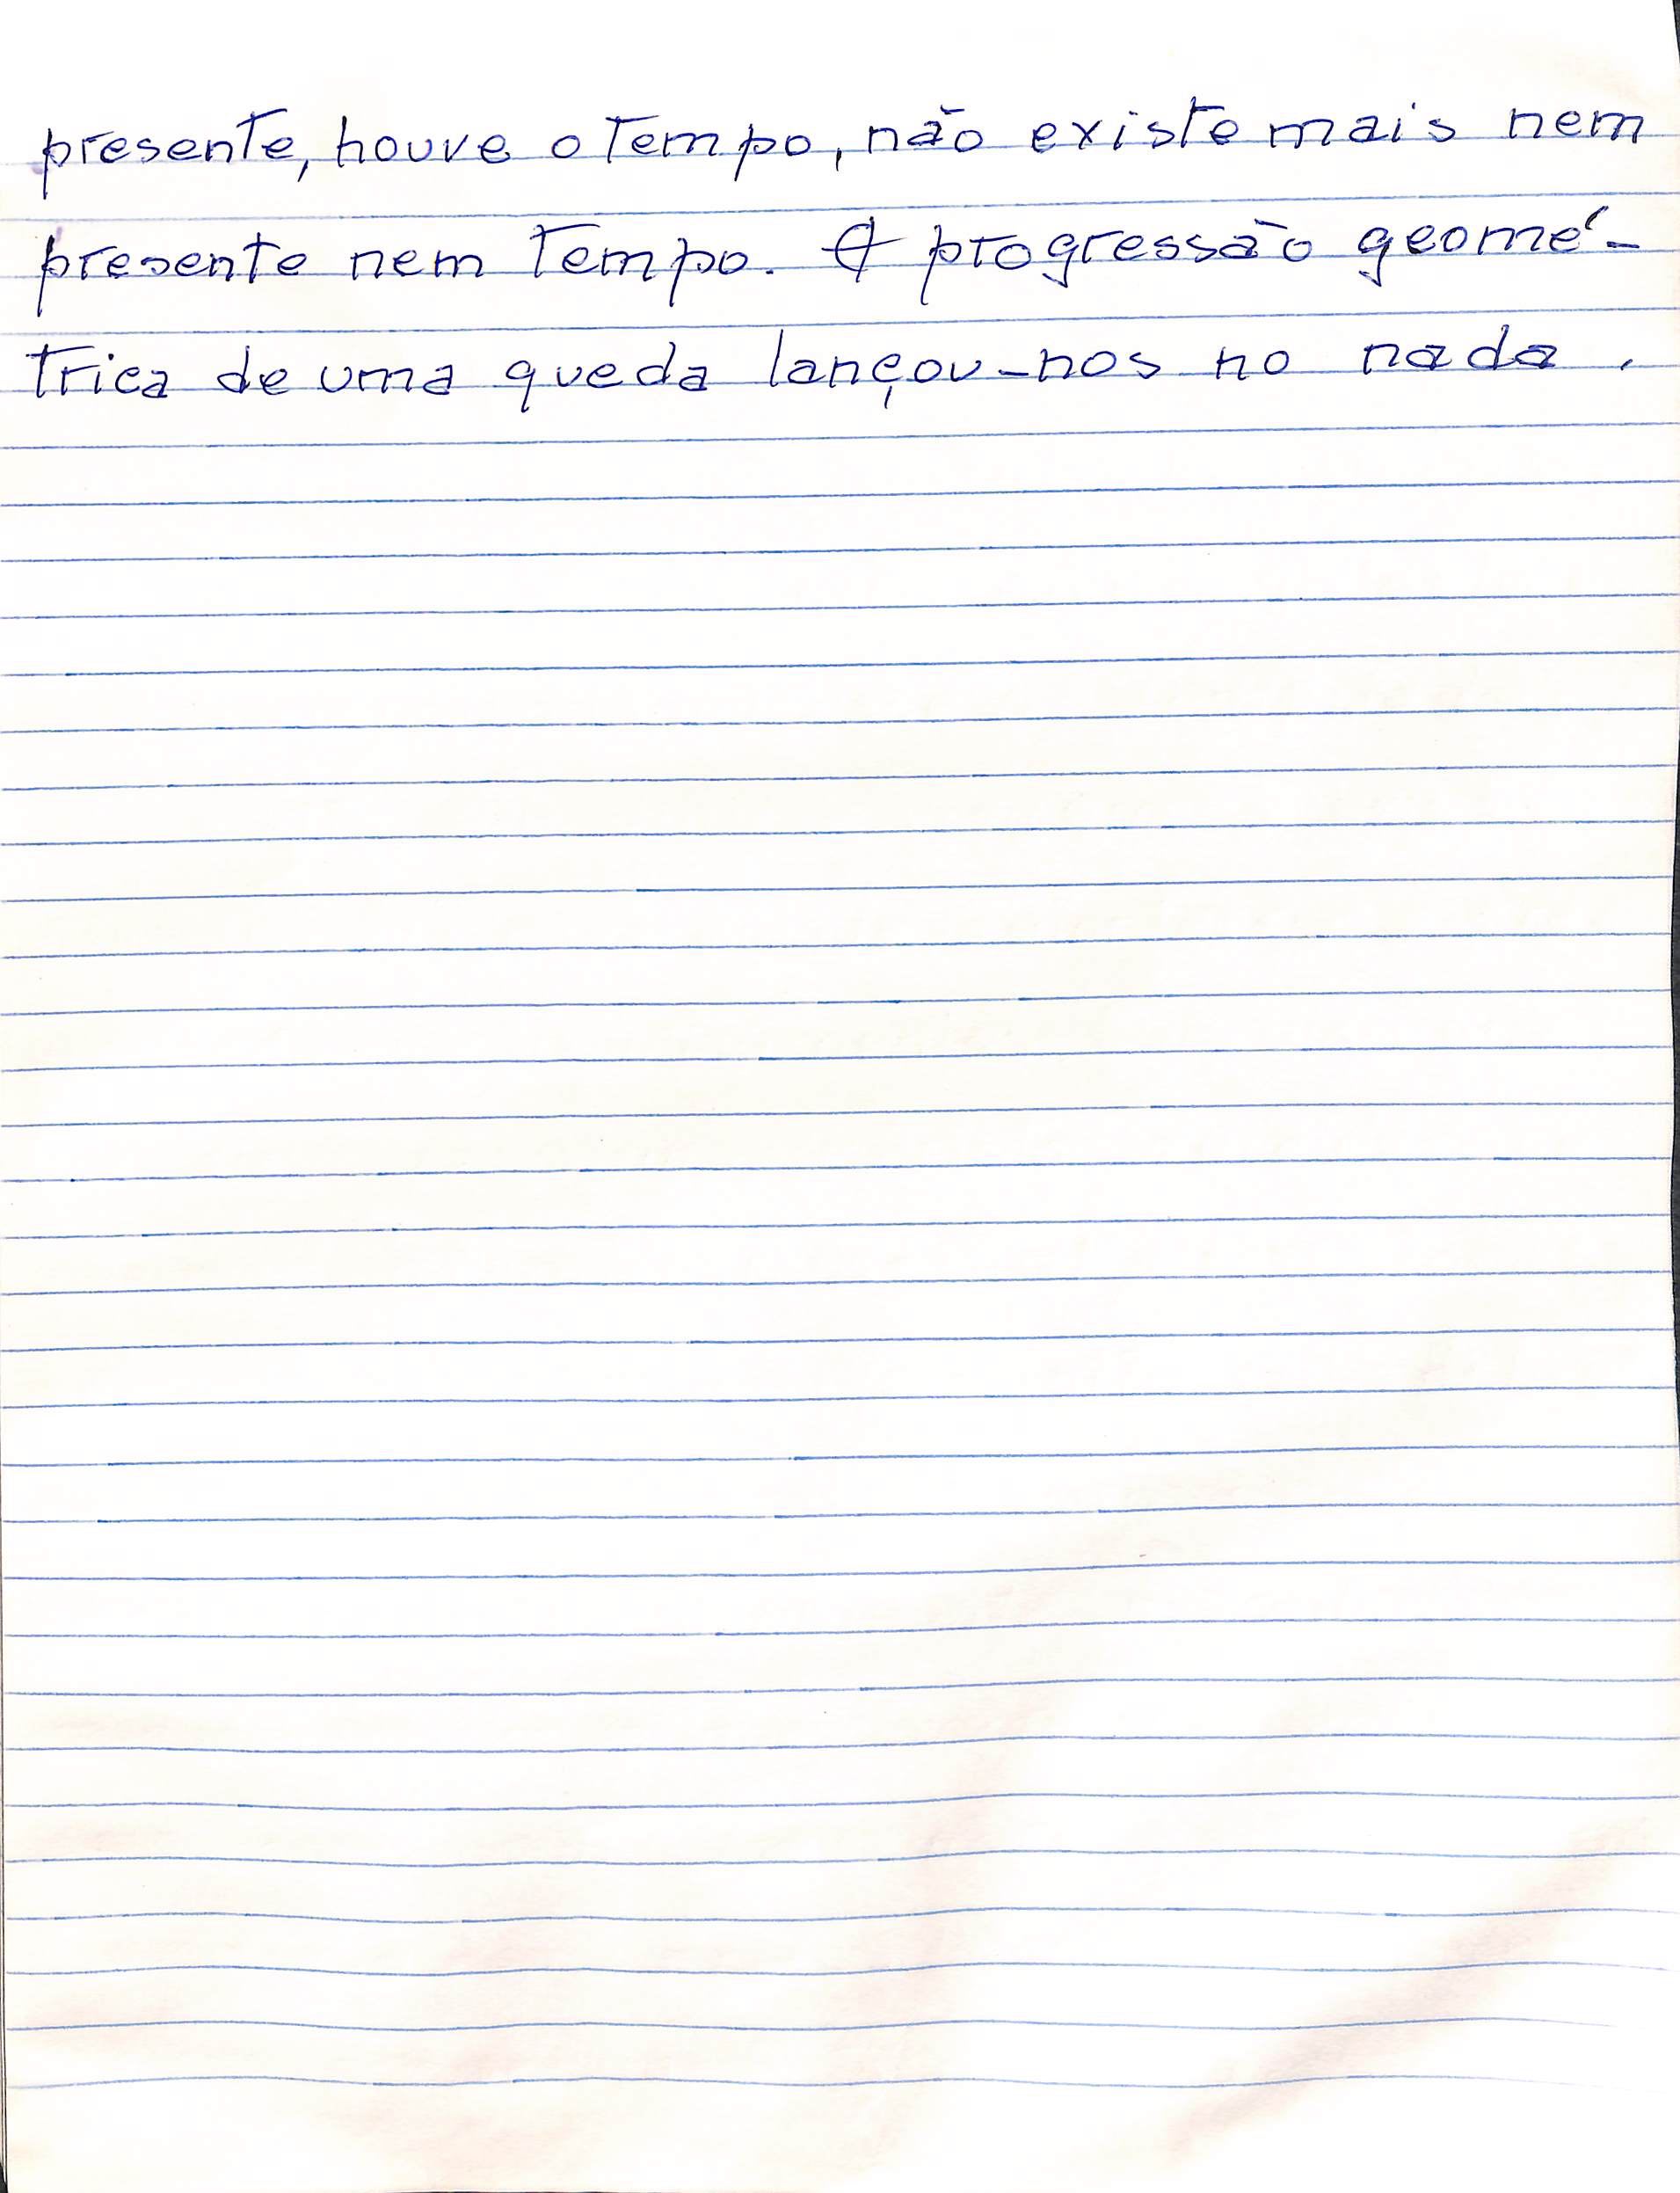 presente, houve o tempo, não existe mais nem
presente nem tempo. A progressão geomé-
trica de uma queda lançou-nos no nada.